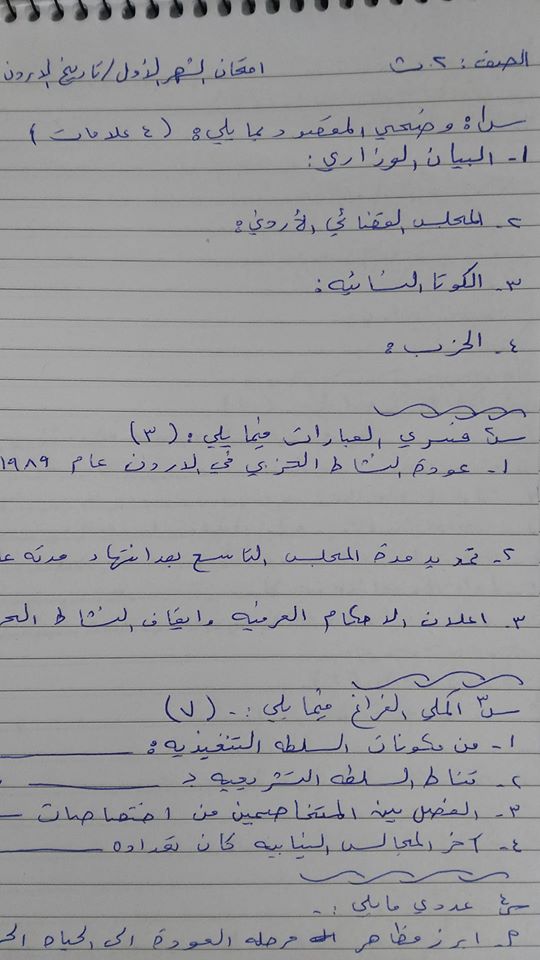 الصف: ٢.ث امتحان الشهر الأول/تاريخ الاردن
س١: وضحي المقصود بما يلي: (٤ علامات)
١- البيان الوزاري:
٢- المجلس القضائي الأردني:
٣- الكوتا النسائيه:
٤- الحزب:
س٢ فسري العبارات فيما يلي: (٣)
١- عودة النشاط الحزبي في الاردن عام ١٩٨٩
٢- تمديد مدة المجلس التاسع بعد انتهاء مدته
٣- اعلان الاحكام العرفيه وايقاف النشاط
س٣ اكملي الفراغ فيما يلي:- (٧)
١- من مكونات السلطه التنفيذيه:
٢- تناط السلطه التشريعيه بـ
٣- الفصل بين المتخاصمين من اختصاصات
٤- آخر المجالس النيابيه كان تعداده
س٤ عددي مايلي:-
٢- ابرز مظاهر مرحله العودة الى الحياه